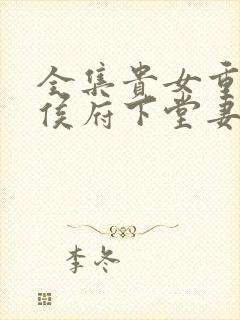 全集貴女重
侯府下堂妻
李冬